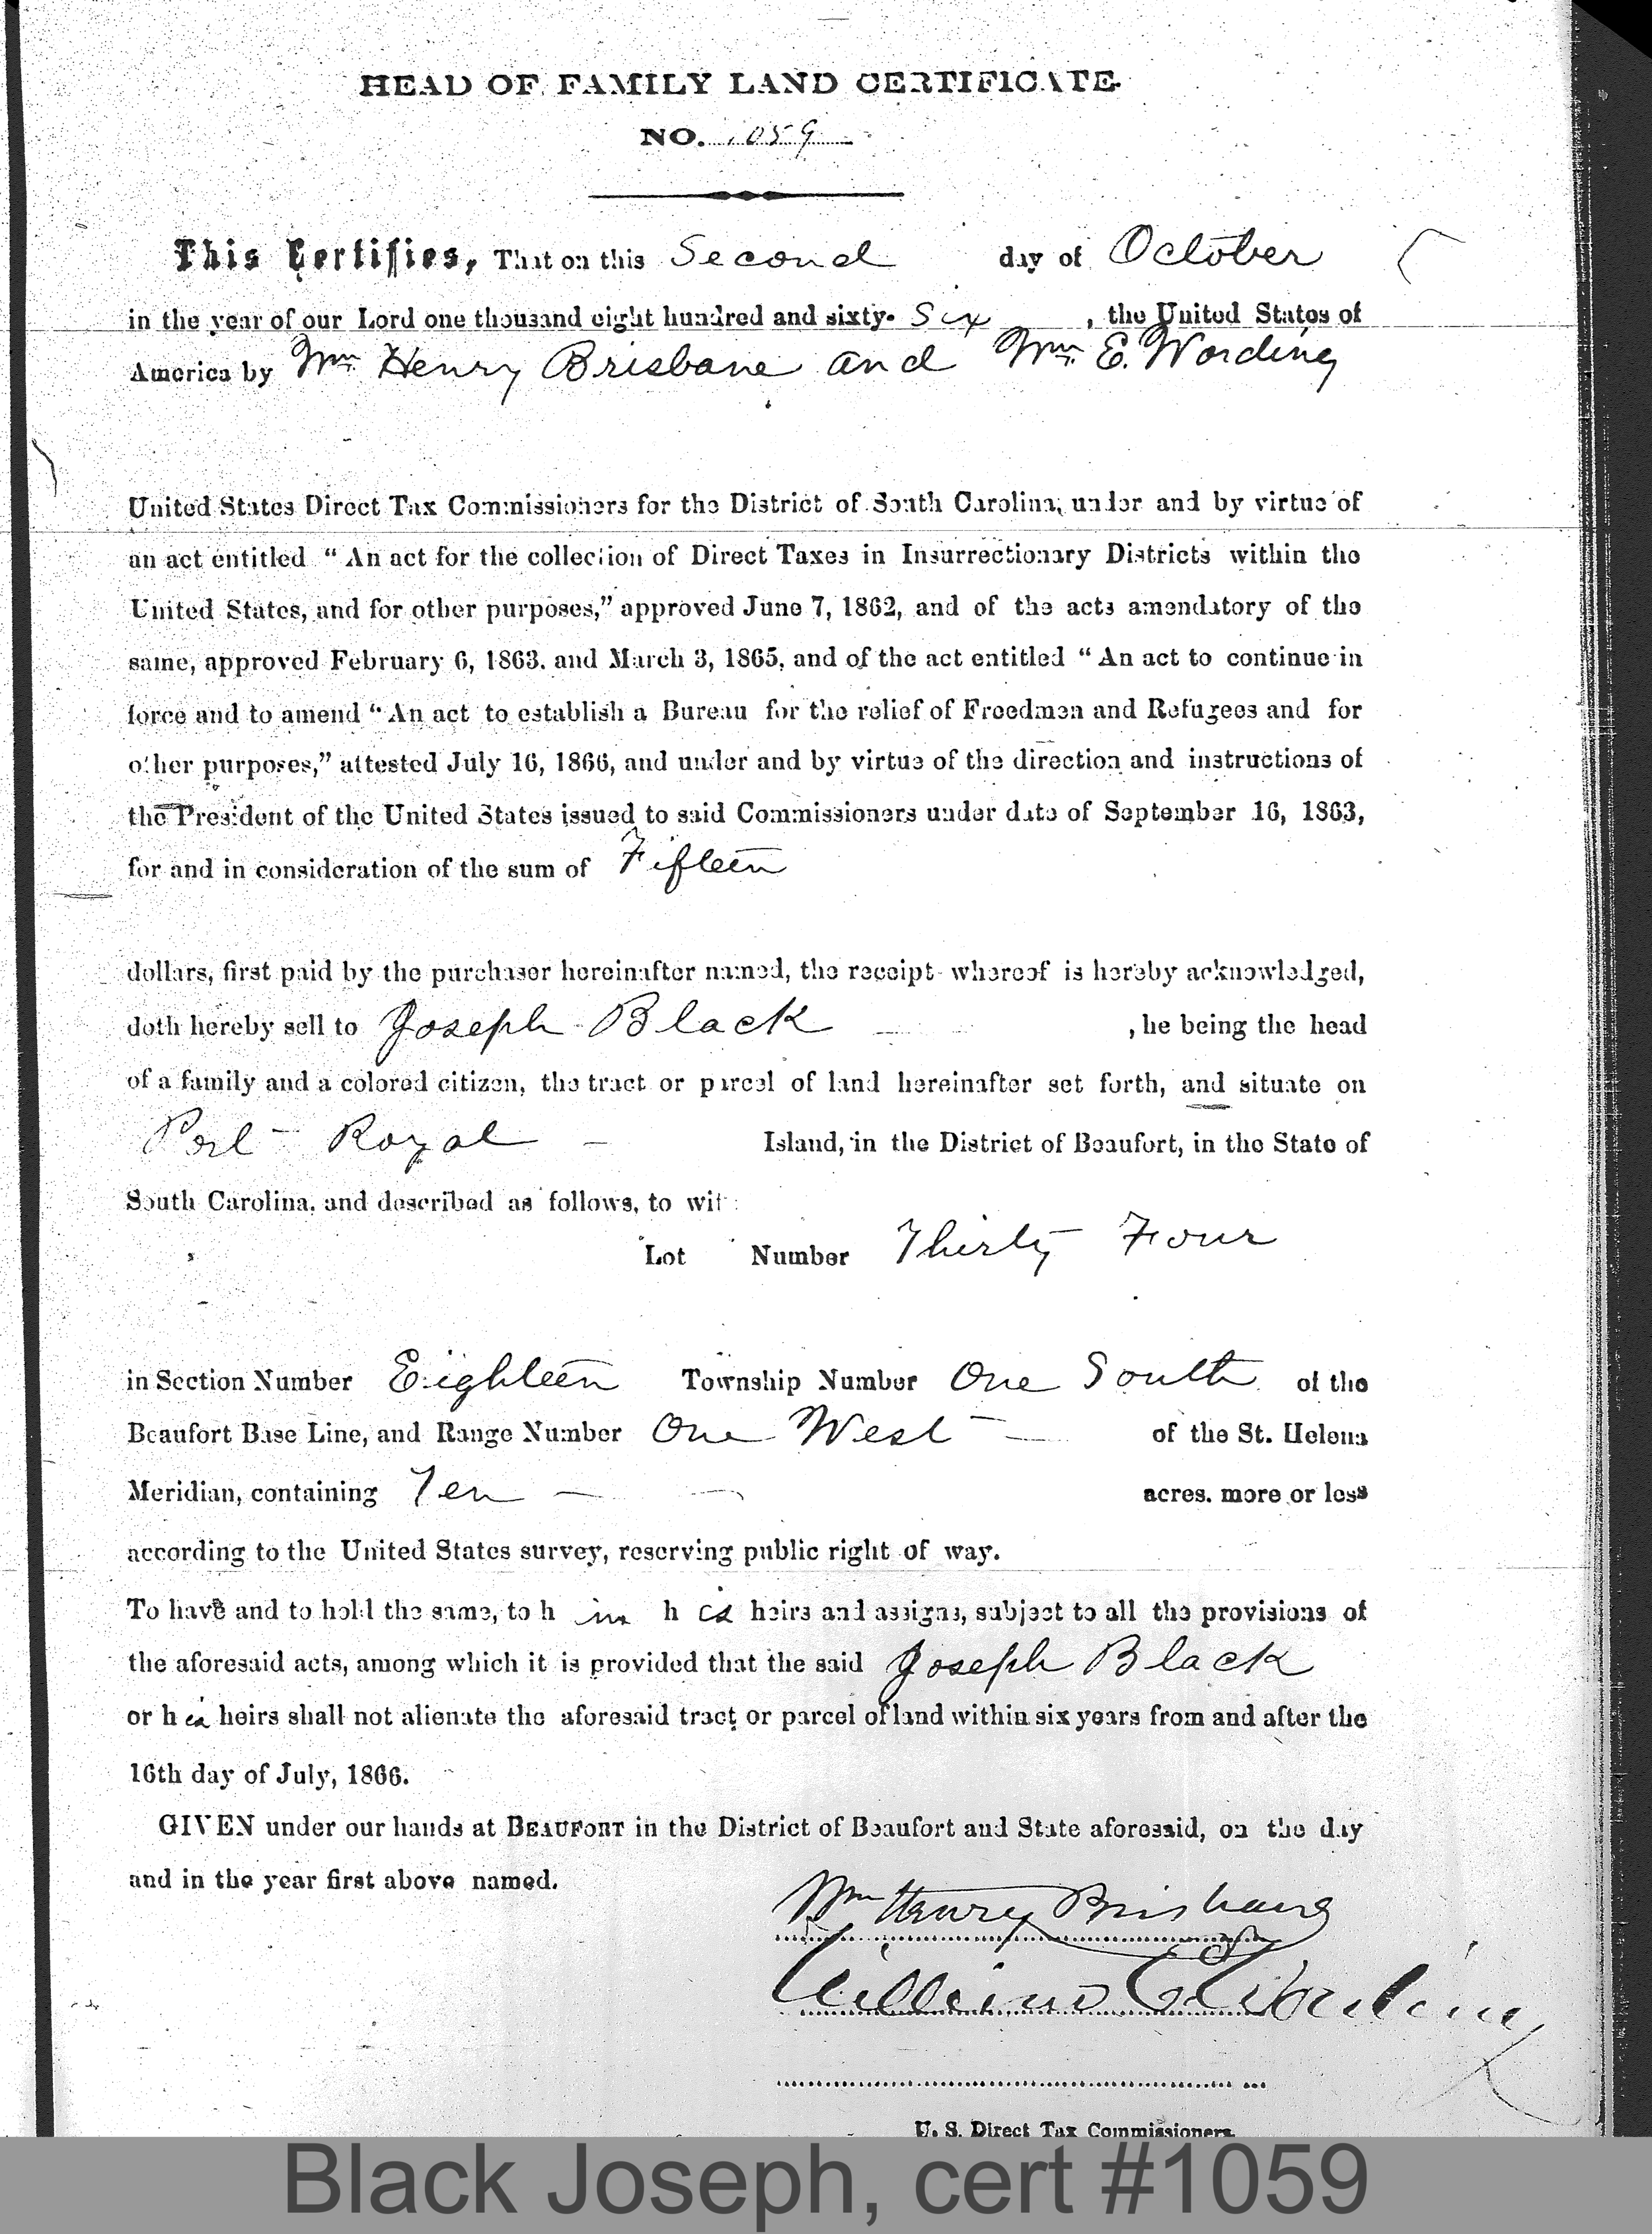 HEAD OF FAMILY LAND CERTIFICATE.
NO. 1059
This Certifies, That on this Second day of October
in the year of our Lord one thousand eight hundred and sixty- Six , the United States of
America by Wm Henry Brisbane and Wm. E. Wording
United States Direct Tax Commissioners for the District of South Carolina, under and by virtue of
an act entitled "An act for the collection of Direct Taxes in Insurrectionary Districts within the
United States, and for other purposes," approved June 7, 1862, and of the acts amendatory of the
same, approved February 6, 1863. and March 3, 1865, and of the act entitled "An act to continue in
force and to amend "An act to establish a Bureau for the relief of Freedmen and Refugees and for
other purposes," attested July 16, 1866, and under and by virtue of the direction and instructions of
the President of the United States issued to said Commissioners under date of September 16, 1863,
for and in consideration of the sum of Fifteen
dollars, first paid by the purchaser hereinafter named, the receipt whereof is hereby acknowledged,
doth hereby sell to Joseph Black , he being the head
of a family and a colored citizen, the tract or parcel of land hereinafter set forth, and situate on
Port Royal Island, in the District of Beaufort, in the State of
South Carolina, and described as follows, to wit:
Lot Number Thirty Four
in Section Number Eighteen Township Number One South of the
Beaufort Base Line, and Range Number One West of the St. Helena
Meridian, containing Ten acres. more or less
according to the United States survey, reserving public right of way.
To have and to hold the same, to h im h is heirs and assigns, subject to all the provisions of
the aforesaid acts, among which it is provided that the said Joseph Black
or h is heirs shall not alienate the aforesaid tract or parcel of land within six years from and after the
16th day of July, 1866.
GIVEN under our hands at BEAUFORT in the District of Beaufort and State aforesaid, on the day
and in the year first above named.
Wm Henry Brisbane
William E. Wording
U. S. Direct Tax Commissioners.
Black Joseph, cert #1059